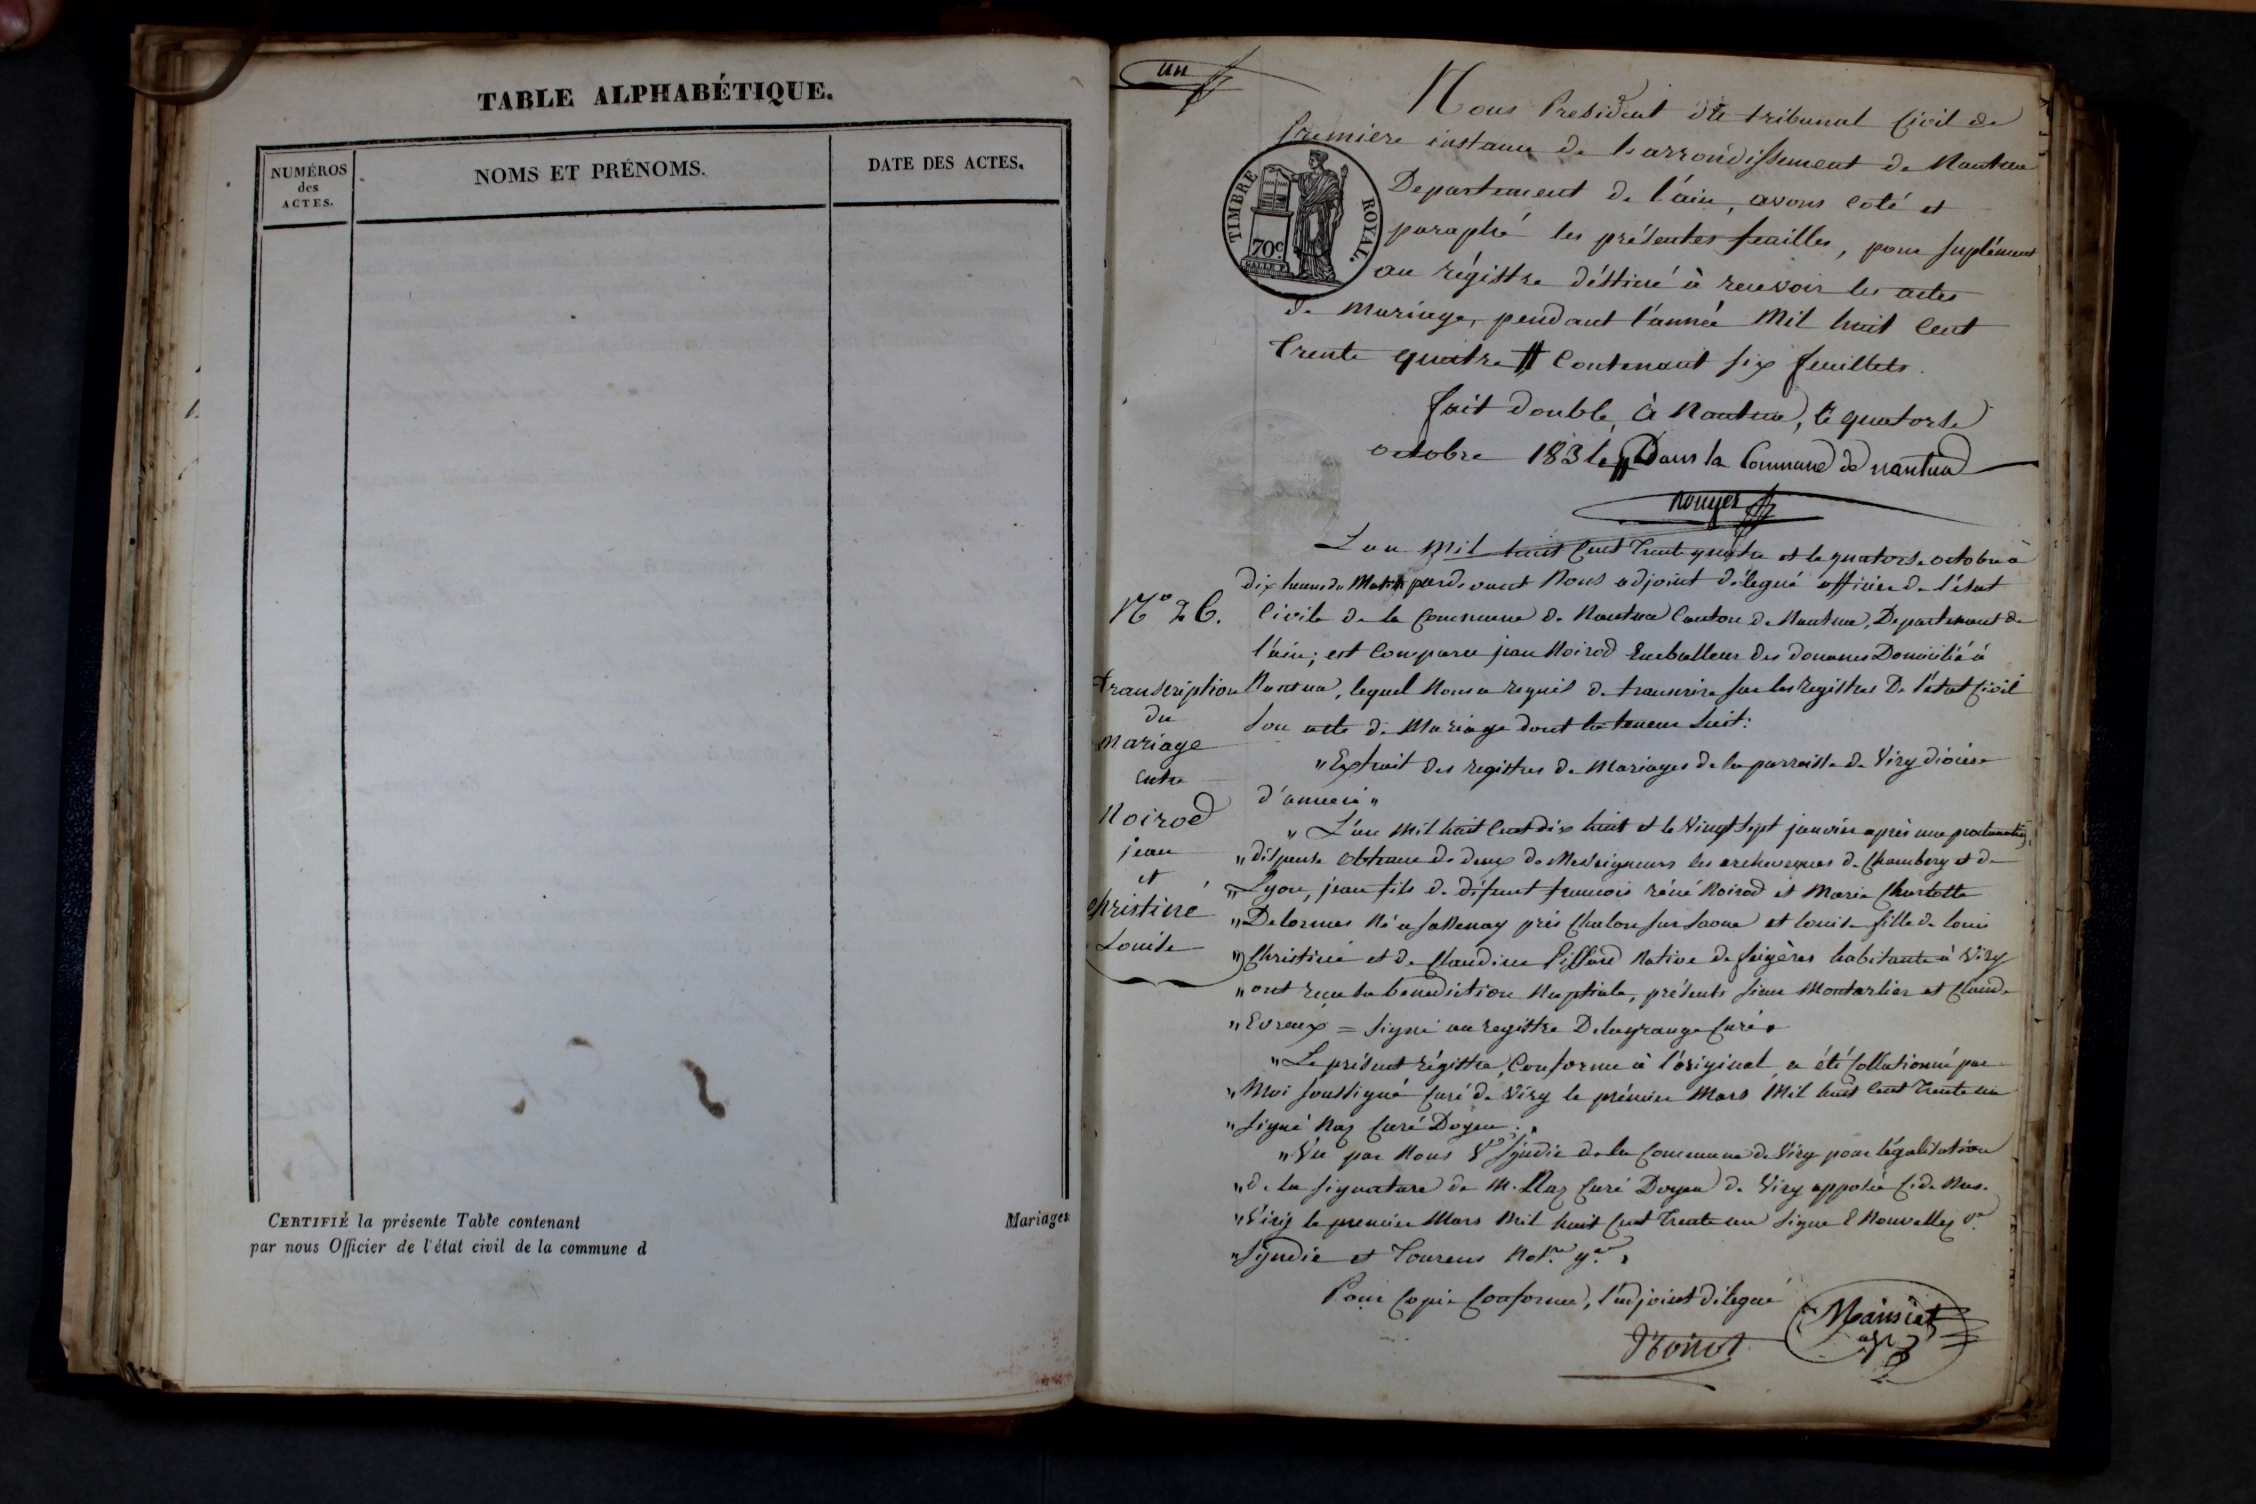 TABLE ALPHABÉTIQUE.
NUMÉROS
des
ACTES.
NOMS ET PRÉNOMS.
DATE DES ACTES.
CERTIFIÉ la présente Table contenant
par nous Officier de l'état civil de la commune d
Mariages
un
Nous President du tribunal Civil de
première instance de l'arrondissement de Nantua
Departement de l'ain, avons coté et
paraphé les présentes feuilles, pour suplément
au régistre déstiné à recevoir les actes
de Mariage, pendant l'année Mil huit Cent
trente quatre # Contenant six feuillets.
TIMBRE ROYAL.
70c
fait double, à Nantua, le quatorse
octobre 1834 # Dans la Commune de nantua
Rouyer
L'an Mil huit Cent Trente quatre et le quatorse octobre à
dix heures du Matin pardevant Nous adjoint délegué officier de l'état
Civile de la Commune de Nantua Canton de Nantua, Departement de
l'ain; est Comparu jean Noirod Emballeur des douanes Domicilié à
Nantua, lequel Nous a requis de transcrire sur les registres De l'état Civil
son acte de Mariage dont la teneur suit:
N° 26.
Transcription
du
Mariage
entre
Noirod
jean
et
Christiné
Louise
" Extrait des registres de Mariages de la parroisse de Viry diocèse
d'anneci "
" L'an Mil huit Cent dix huit et le Vingt sept janvier après une proclamation,
" dispense obtenue de deux de Messeigneurs les archeveques de Chambery et de
" Lyon, jean fils de défunt francois réné Noirod et Marie Charlotte
" Delormes Né a Sassenay près Chalon sur Saone et louise fille de louis
" Christiné et de Claudine Piffard Native de feigères habitante à Viry
" ont reçu la benediction Nuptiale, présents Sieur Montarlier et Claude
" Evreux = Signé au registre Delagrange Curé "
" Le présent régistre, Conforme à l'original a été Collationné par
" Moi soussigné Curé de Viry le prémier Mars Mil huit Cent Trente un
" Signé Naz Curé Doyen. "
" Vu par Nous Vce Syndic de la Commune de Viry pour légalisation
" de la signature de M. Naz Curé Doyen de Viry apposée
" Viry le premier Mars Mil huit Cent Trente un Signé E Nouvellez Vce
" Syndic et Tourens Not.re
Pour Copie Conforme, l'adjoint délegué
Noirot
Mansiat